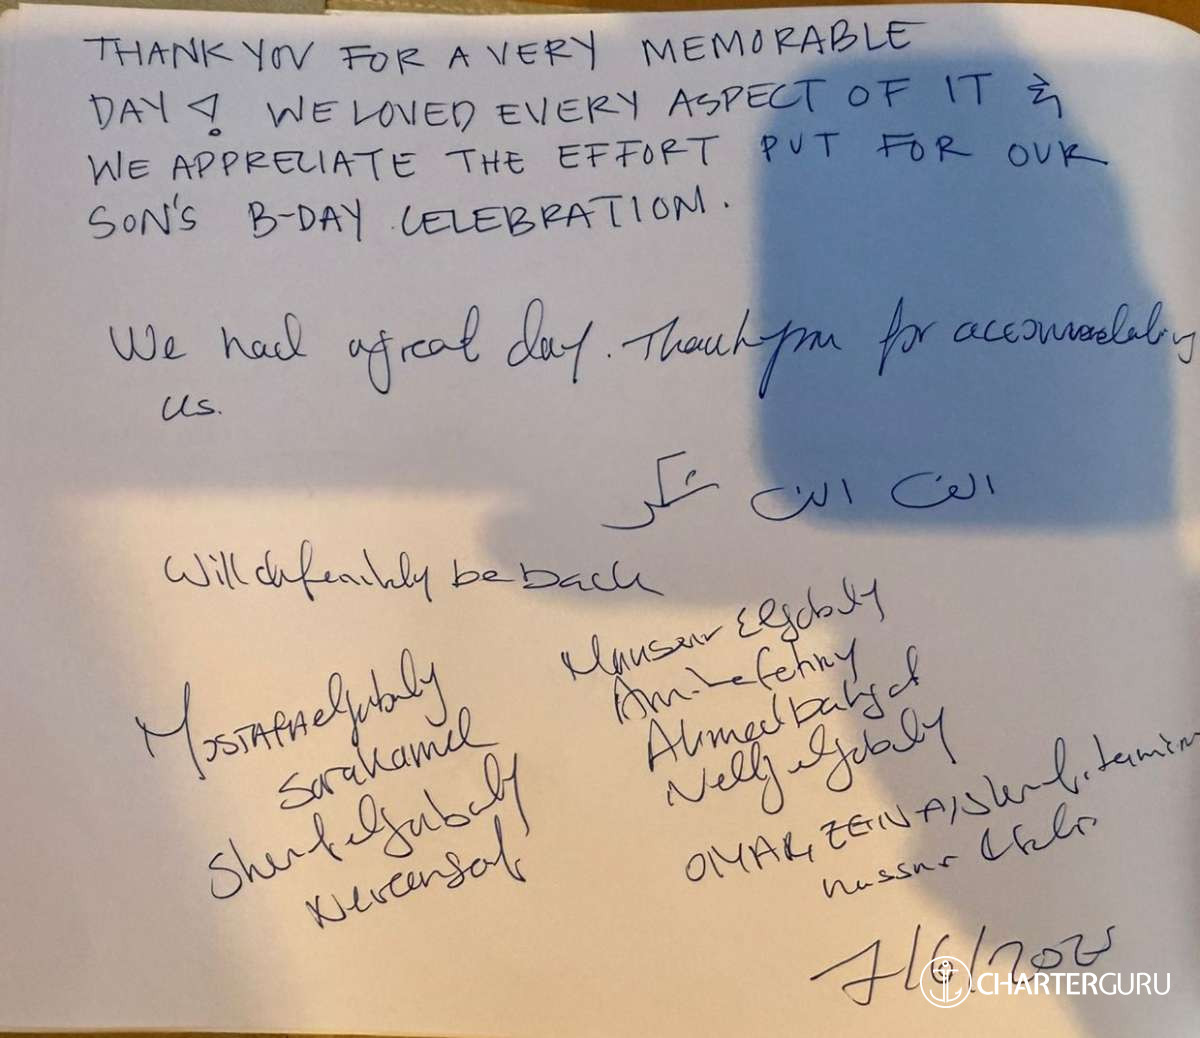 THANK YOU FOR A VERY MEMORABLE
DAY! WE LOVED EVERY ASPECT OF IT &
WE APPRECIATE THE EFFORT PUT FOR OUR
SON'S B-DAY CELEBRATION.
We had a great day. Thank you for accommodating
us.
الف الف شكر
Will definitely be back
Mansour Elgabaly
Amina fehmy
Ahmed bahgat
Nelly elgabaly
MOSTAFA elgabaly
Sara Kamel
Sherif elgabaly
OMAR, ZEINA,
7/6/2025
CHARTERGURU